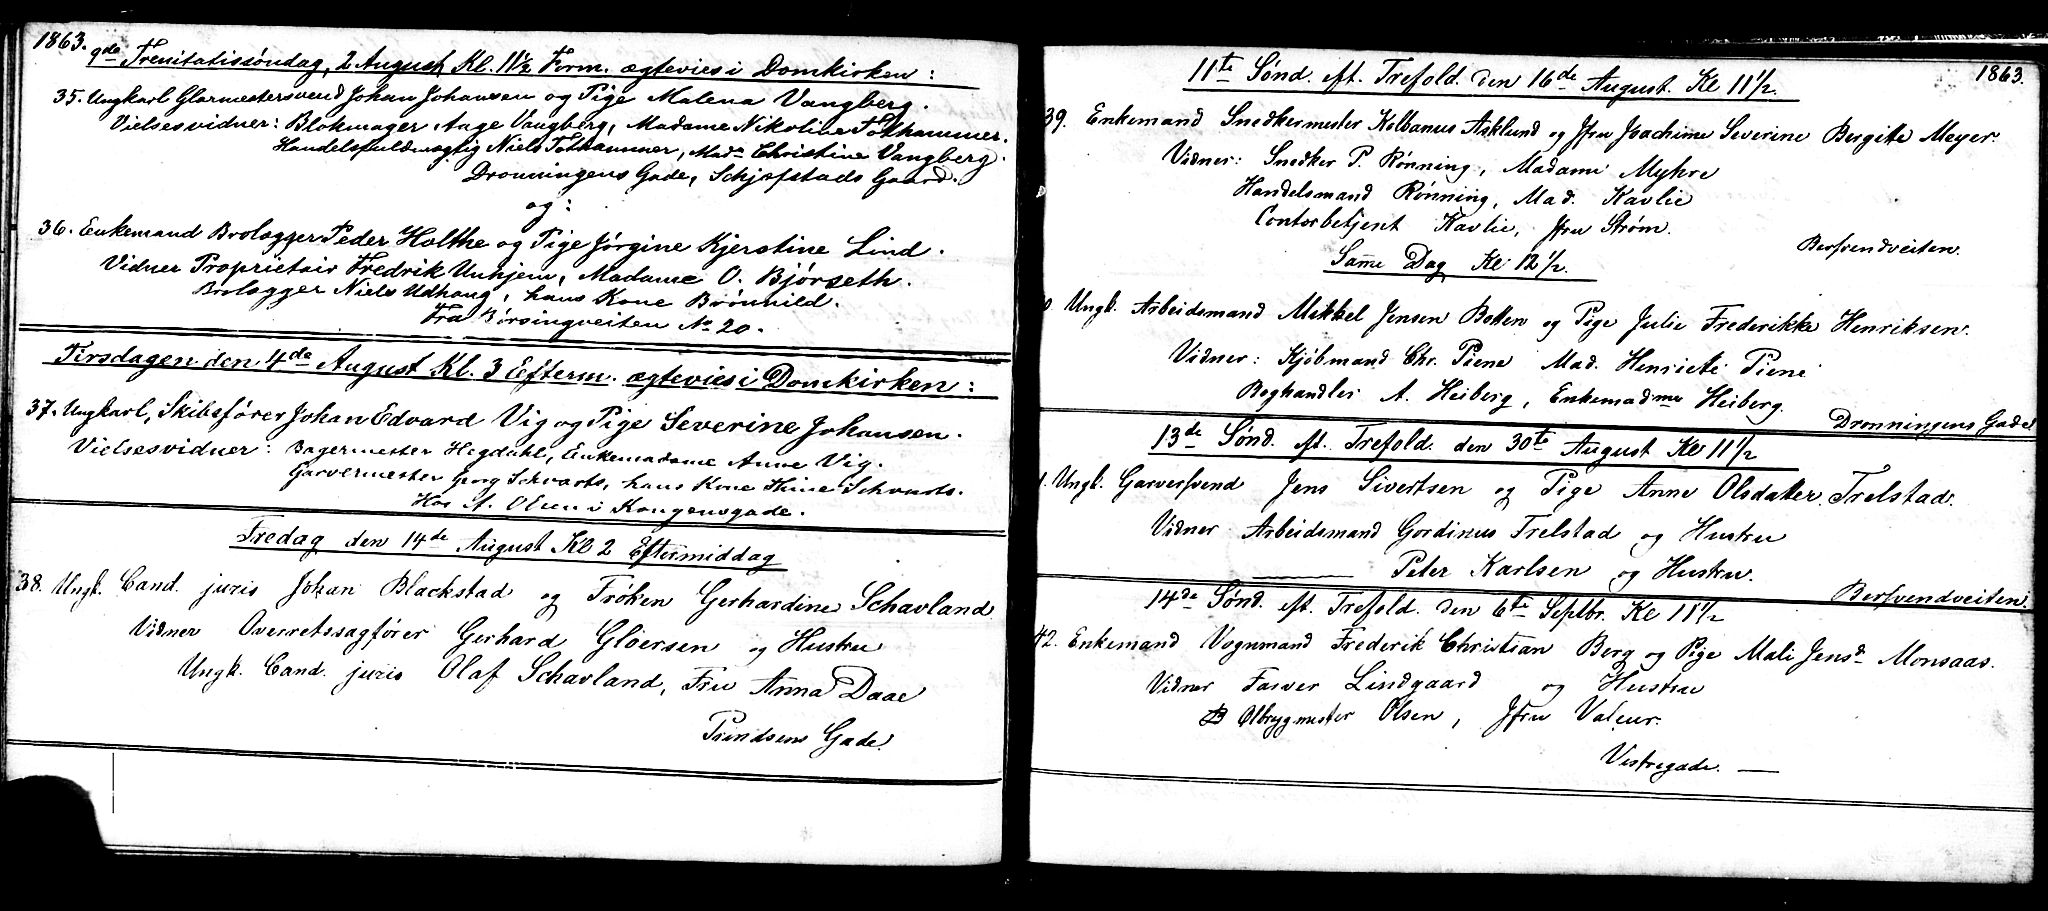 1863.
9de Trenitatissøndag, 2 August Kl. 11½ Form. ægtevies i Domkirken:
35. Ungkarl Glarmestersvend Johan Johansen og Pige Malena Vangberg.
Vielsesvidner: Blokmager Aage Vangberg, Madame Nikoline Folhammer.
Handelsfuldmægtig Niels Folhammer, Mad. Christine Vangberg.
Dronningens Gade, Schjefstads Gaard.
og:
36. Enkemand Brolægger Peder Holthe og Pige Jørgine Kjerstine Lind.
Vidner Proprietair Fredrik Unhjem, Madame O. Bjørseth.
Brolægger Niels Udhaug, hans Kone Brønnild.
Fra Børsingveiten No 20.
Tirsdagen den 4de August Kl. 3 Efterm. ægtevies i Domkirken:
37. Ungkarl, Skibsfører Johan Edvard Vig og Pige Severine Johansen.
Vielsesvidner: Bagermester Hegdahl, Enkemadame Anne Vig.
Garvermester Georg Schvarts, hans Kone Thine Schvarts.
Hos A. Olsen i Kongensgade.
Fredag den 14de August Kl 2 Eftermiddag
38. Ungk. Cand. juris Johan Blackstad og Frøken Gerhardine Schavland
Vidner Overretssagfører Gerhard Gløersen og Hustru
Ungk. Cand. juris Olaf Schavland, Fru Anna Daae
Prindsens Gade.
1863.
11te Sønd. eft. Trefold. den 16de August. Kl 11½.
39. Enkemand Snedkermester Kolbanus Asklund og Jfru Joachime Severine Bergite Meyer.
Vidner: Snedker P. Rønning, Madame Myhre
Handelsmand Rønning, Mad. Kavlie
Contorbetjent Kavlie, Jfru Strøm.
Bersvendveiten.
Samme Dag Kl 12½.
Ungk. Arbeidsmand Mikkel Jensen Botten og Pige Julie Frederikke Henriksen.
Vidner: Kjøbmand Chr. Piene Mad. Henriete Piene
Boghandler A. Heiberg, Enkemadme Heiberg.
Dronningens Gade
13de Sønd. eft. Trefold. den 30te August Kl 11½
1. Ungk. Garversvend Jens Sivertsen og Pige Anne Olsdatter Trelstad.
Vidner Arbeidsmand Gordinus Trelstad og Hustru
——— Peter Karlsen og Hustru.
Bersvendveiten.
14de Sønd. eft. Trefold. den 6te Septbr. Kl 11½
42. Enkemand Vognmand Frederik Christian Berg og Pige Mali Jensd. Monsaas.
Vidner Farver Lindgaard og Hustru
Ølbrygmester Olsen, Jfru Valeur.
Vestregade. —